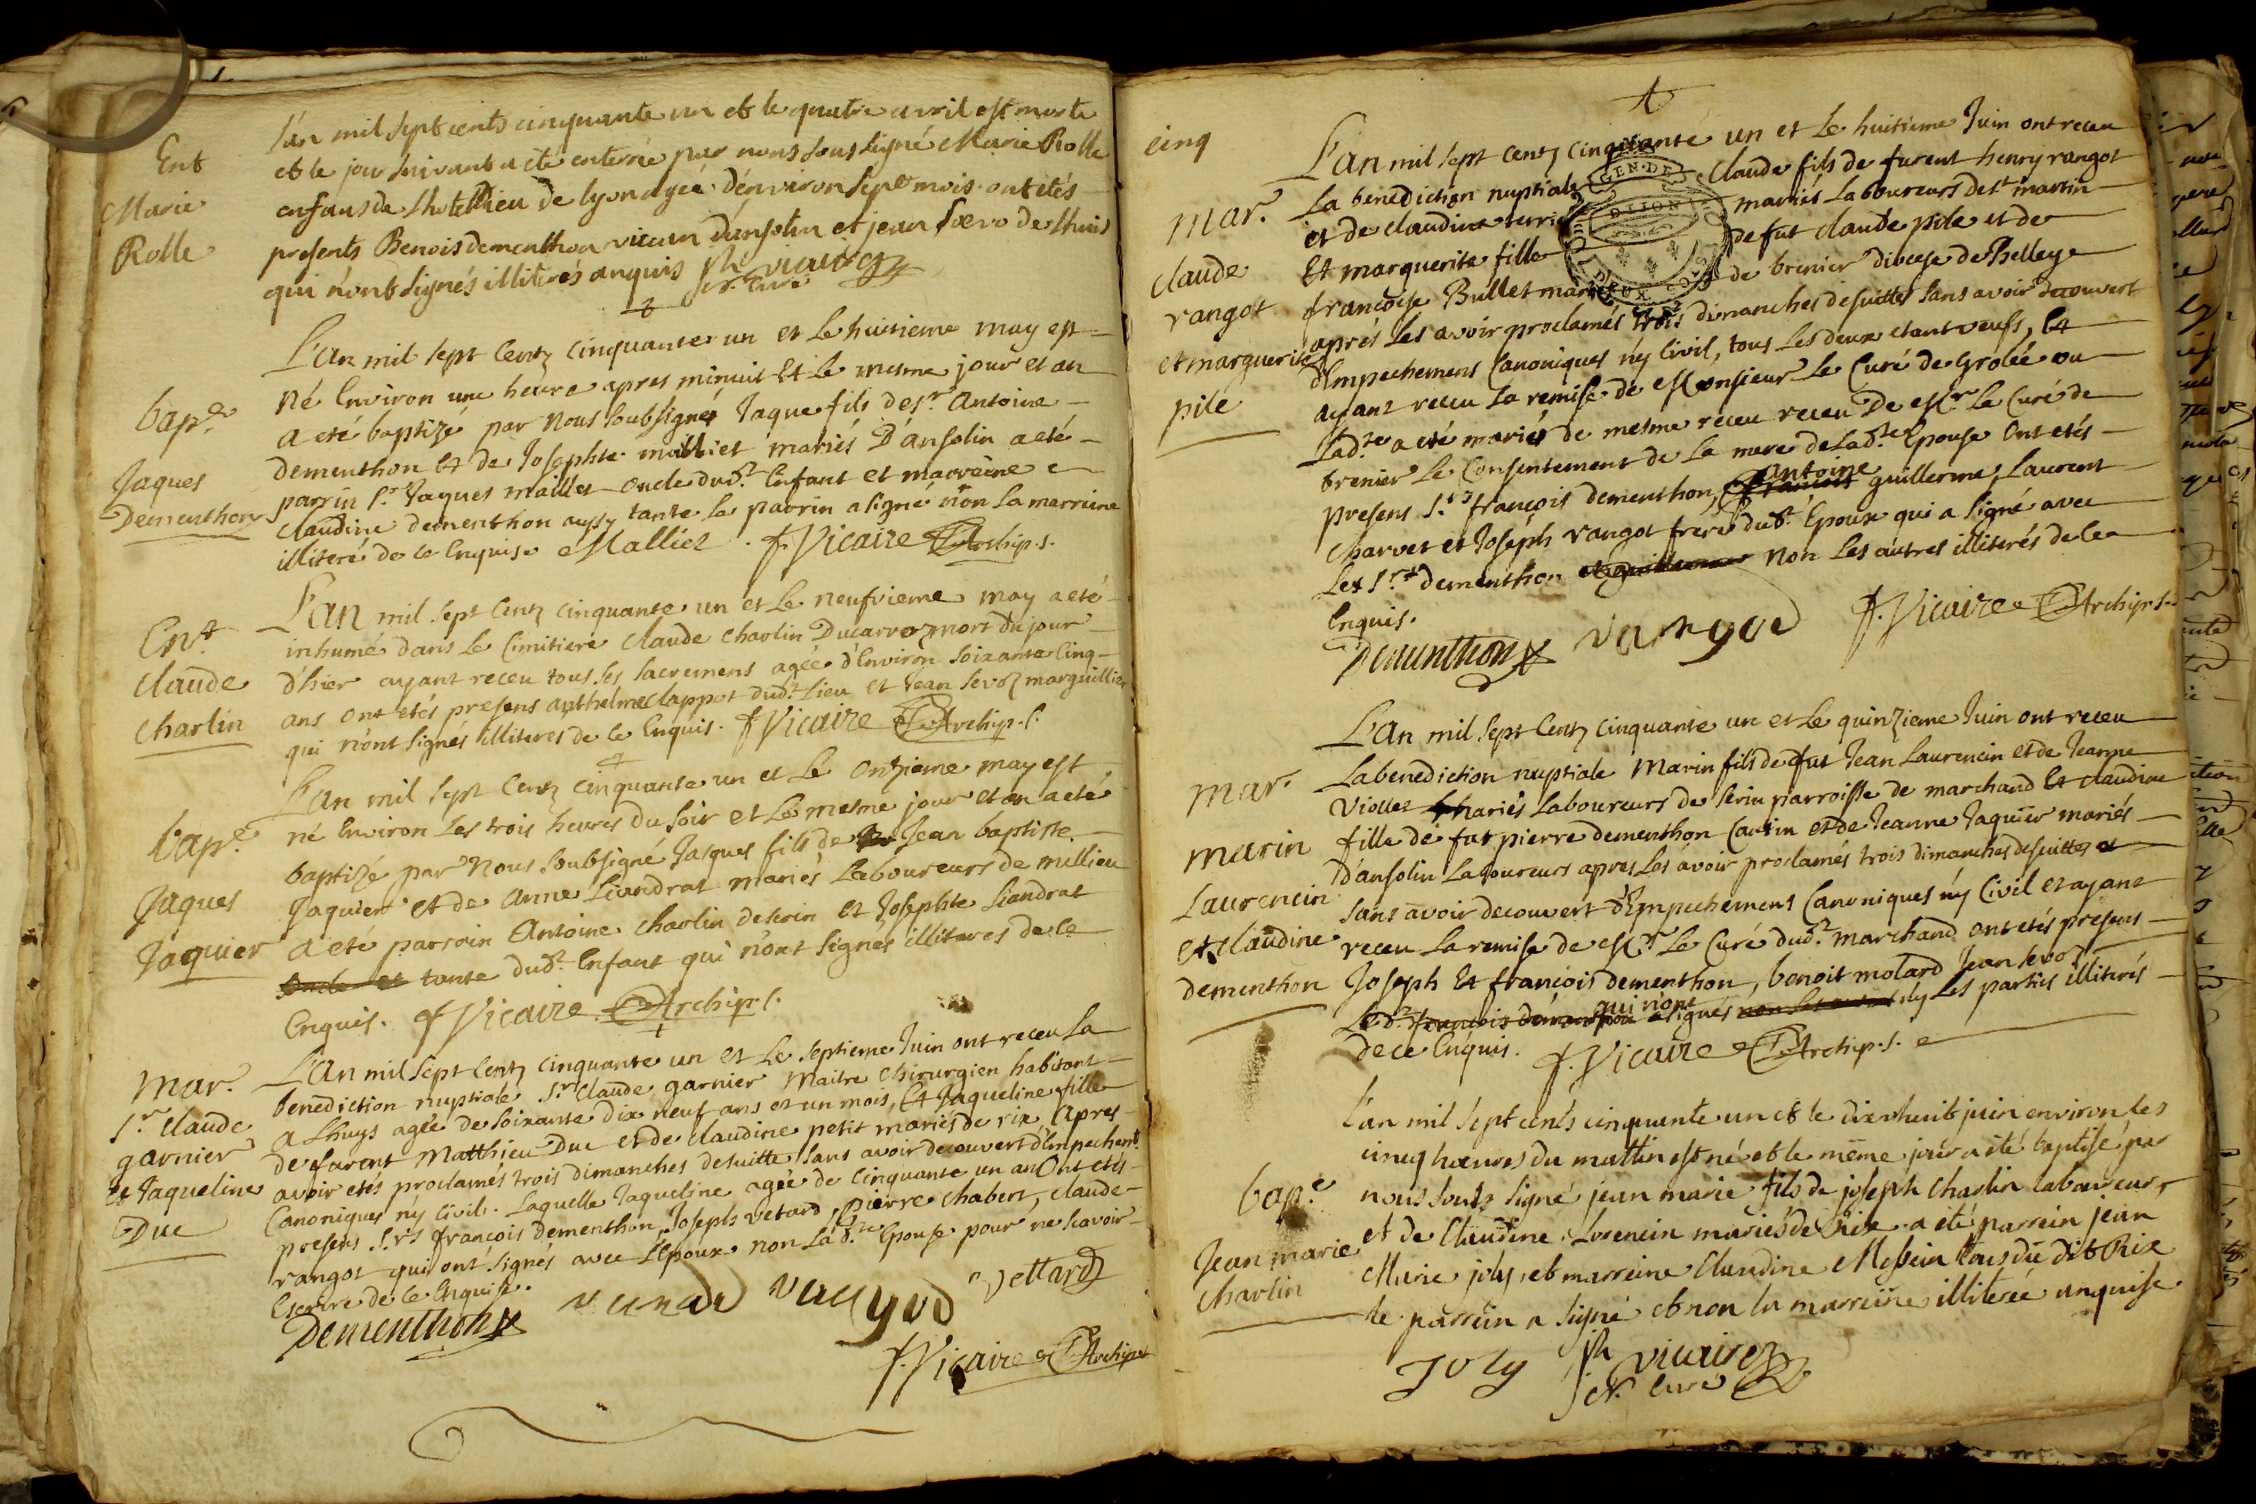 Ent
Marie
Rolle
L'an mil sept cents cinquante un et le quatre avril est morte
et le jour suivant a été enterrée par nous sous signé Marie Rolle
enfans de L'hotelDieu de lyon agée d'environ sept mois. ont etés
presents Benois dementhon vicam d'ansolin et jean de lhuis
qui n'ont signés illiterés anquis vicaire
Curé
bap.e
Jaques
Dementhon
L'an mil sept Centz cinquante un et Le huitieme may est
né Environ une heure apres minuit Et Le mesme jour et an
a eté baptizé par Nous Soubsignés Jaque fils de sr. Antoine
dementhon Et de Josephte malliet mariés D'ansolin a eté
parrin Sr. Jaques maillet oncle dudt. Enfant et marreine
Claudine dementhon aussy tante Le parrin a signé non La marreine
illiteré de ce Enquise Malliet. f. Vicaire Archip.s.
Ent
Claude
Charlin
L'an mil sept Centz cinquante un et Le neufvieme may a eté
inhumé dans Le Cimitiere Claude Charlin Ducarroz mort du jour
d'hier ayant receu tous ses sacremens agée d'Environ soixante Cinq
ans ont etés presens anthelme Clappot dudt. Lieu et Jean Sevoz marguillier
qui n'ont signés illiteres de ce Enquis. f. Vicaire Archip.s.
bap.e
Jaques
Jaquier
L'an mil sept Centz cinquante un et Le onzieme may est
né Environ Les trois heures du soir et Le mesme jour et an a eté
baptizé par Nous Soubsigné Jasques fils de Jean baptiste
Jaquier et de anne Liandrat mariés Laboureurs de millieu
a eté parroin Antoine Charlin de serin Et Josephte Liandrat
oncle et tante dudt. Enfant qui n'ont signés illiteres de ce
Enquis. f. Vicaire Archip.s.
Mar.
Sr. Claude
garnier
et Jaqueline
Duc
L'an mil sept Centz cinquante un et Le septieme Juin ont receu La
benediction nuptiale Sr. Claude garnier Maitre chirurgien habitant
a Lhuys agée de soixante dix neuf ans et un mois, Et Jaqueline fille
de furent Matthieu Duc et de Claudine petit mariés de rix, apres
avoir etés proclamés trois dimanches de suitte sans avoir decouvert d'Empechemt.
Canoniques ny Civils. Laquelle Jaqueline agée de Cinquante un an Ont etés
presens S.rs françois dementhon, Joseph vetard, Pierre Chabert, Claude
rangot qui ont signés avec L'Epoux non Lad.te Epouse pour ne scavoir
Escrire de ce Enquise.
Dementhon rangod vettard
f. Vicaire Archip.s
cinq
mar.
claude
rangot
et marguerite
pile
L'an mil sept Centz cinquante un et Le huitieme Juin ont receu
La benediction nuptiale Claude fils de furent henry rangot
et de Claudine mariés Laboureurs de st. martin
Et marguerite fille de fut Claude pile et de
françoise Bullet mariés de brenier diocese de Belleye
après Les avoir proclamés trois dimanches de suittes sans avoir decouvert
d'Empechemens Canoniques ny Civil, tous Les deux etant veufs, Et
ayant receu La remise de Monsieur Le Curé de Groleé ou
Lad.te a eté mariés de mesme receu receu De Mr. Le Curé de
brenier Le Consentement de La mere de Lad.te Epouse Ont etés
presens S.rs françois dementhon, françois antoine guillerme, Laurent
Charvet et Joseph rangot frere dudt. Epoux qui a signé avec
Les S.rs dementhon et guillerme non Les autres illiterés de ce
Enquis.
Dementhon rangod f. Vicaire Archip.s.
mar.
marin
Laurencin
et Claudine
dementhon
L'an mil sept Centz cinquante un et Le quinzieme Juin ont receu
La benediction nuptiale Marin fils de fut Jean Laurencin et de Jeanne
Viollet mariés Laboureurs de serin parroisse de marchand Et Claudine
fille de fut pierre dementhon Cantin et de Jeanne Jaquier mariés
d'ansolin Laboureurs apres Les avoir proclamés trois dimanches de suittes
sans avoir decouvert d'Empechement Canoniques ny Civil et ayant
receu La remise de Mr. Le Curé dudt. marchand ont etés presens
Joseph Et françois dementhon, benoit molard Jean Sevoz
Le d. françois dementhon qui n'ont signés non Les autres ny Les parties illiterés
de ce Enquis. f. Vicaire Archip.s.
bap.e
Jean marie
Charlin
L'an mil sept cents cinquante un et le dixehuit juin environ les
cincq hœures du mattin est né et le même jour a été baptisé par
nous souts signé jean marie fils de joseph Charlin laboureur,
et de Claudine Lorencin mariés de Rix. a été parrein jean
Marie joly, et marreine Claudine Messein tous du dit Rix
le parrein a signé et non la marreine illiterée anquise
Joly vicaire
Curé
GEN. DE
DIJON
DEUX